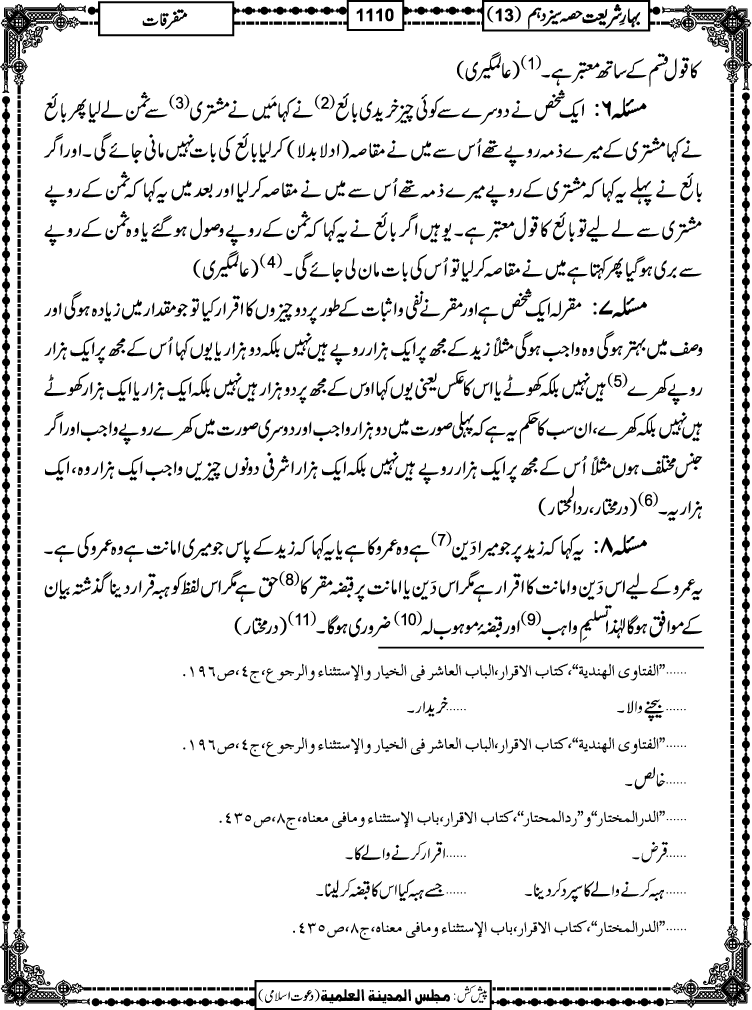 بہارِشریعت حصہ سیزدہم (13)
1110
متفرقات
کا قول قسم کے ساتھ معتبر ہے۔(1) (عالمگیری)
مسئلہ ۶: ایک شخص نے دوسرے سے کوئی چیز خریدی بائع(2) نے کہا مَیں نے مشتری(3) سے ثمن لے لیا پھر بائع
نے کہا مشتری کے میرے ذمہ روپے تھے اُس سے میں نے مقاصہ (ادلا بدلا) کرلیا بائع کی بات نہیں مانی جائے گی۔ اور اگر
بائع نے پہلے یہ کہا کہ مشتری کے روپے میرے ذمہ تھے اُس سے میں نے مقاصہ کرلیا اور بعد میں یہ کہا کہ ثمن کے روپے
مشتری سے لے لیے تو بائع کا قول معتبر ہے۔ یوہیں اگر بائع نے یہ کہا کہ ثمن کے روپے وصول ہوگئے یا وہ ثمن کے روپے
سے بری ہوگیا پھر کہتا ہے میں نے مقاصہ کرلیا تو اُس کی بات مان لی جائے گی۔(4) (عالمگیری)
مسئلہ ۷: مقرلہ ایک شخص ہے اور مقر نے نفی و اثبات کے طور پر دو چیزوں کا اقرار کیا تو جو مقدار میں زیادہ ہوگی اور
وصف میں بہتر ہوگی وہ واجب ہوگی مثلاً زید کے مجھ پر ایک ہزار روپے ہیں نہیں بلکہ دو ہزار یا یوں کہا اُس کے مجھ پر ایک ہزار
روپے کھرے(5) ہیں نہیں بلکہ کھوٹے یا اس کا عکس یعنی یوں کہا اوس کے مجھ پر دو ہزار ہیں نہیں بلکہ ایک ہزار یا ایک ہزار کھوٹے
ہیں نہیں بلکہ کھرے، ان سب کا حکم یہ ہے کہ پہلی صورت میں دو ہزار واجب اور دوسری صورت میں کھرے روپے واجب اور اگر
جنس مختلف ہوں مثلاً اُس کے مجھ پر ایک ہزار روپے ہیں نہیں بلکہ ایک ہزار اشرفی دونوں چیزیں واجب ایک ہزار وہ، ایک
ہزار یہ۔(6) (درمختار، ردالمحتار)
مسئلہ ۸: یہ کہا کہ زید پر جو میرا دَین(7) ہے وہ عمرو کا ہے یا یہ کہا کہ زید کے پاس جو میری امانت ہے وہ عمرو کی ہے۔
یہ عمرو کے لیے اس دَین و امانت کا اقرار ہے مگر اس دَین یا امانت پر قبضہ مقر کا(8) حق ہے مگر اس لفظ کو ہبہ قرار دینا گذشتہ بیان
کے موافق ہوگا لہٰذا تسلیمِ واہب(9) اور قبضۂ موہوب لہ(10) ضروری ہوگا۔(11) (درمختار)
......”الفتاوی الھندیة“، کتاب الاقرار، الباب العاشر فی الخیار والإستثناء والرجوع، ج٤، ص١٩٦.
......بیچنے والا۔ ......خریدار۔
......”الفتاوی الھندیة“، کتاب الاقرار، الباب العاشر فی الخیار والإستثناء والرجوع، ج٤، ص١٩٦.
......خالص۔
......”الدرالمختار“ و”ردالمحتار“، کتاب الاقرار، باب الإستثناء ومافی معناہ، ج٨، ص٤٣٥.
......قرض۔ ......اقرار کرنے والے کا۔
......ہبہ کرنے والے کا سپرد کردینا۔ ......جسے ہبہ کیا اس کا قبضہ کرلینا۔
......”الدرالمختار“، کتاب الاقرار، باب الإستثناء ومافی معناہ، ج٨، ص٤٣٥.
پیش کش: مجلس المدینة العلمیة (دعوتِ اسلامی)